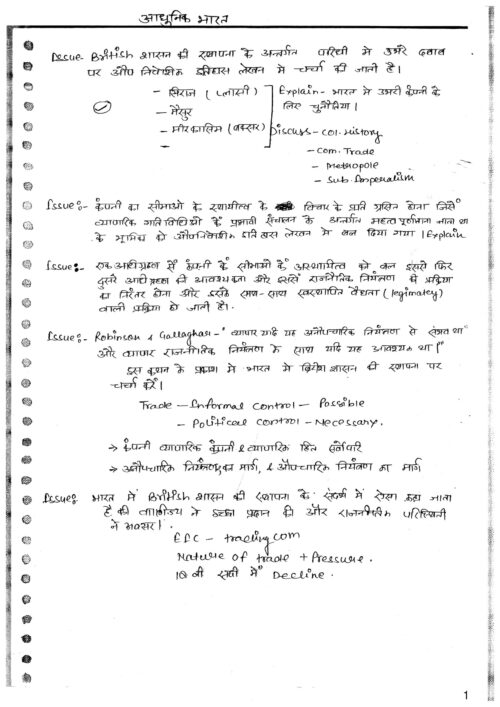 आधुनिक भारत
Issue- British शासन की स्थापना के अन्तर्गत परिधी में उभरे दबाव
पर औपनिवेशिक इतिहास लेखन में चर्चा की जाती है।
- सिराज (प्लासी)
- मैसूर
- मीरकासिम (बक्सर)
Explain- भारत में उभरी कंपनी के
लिए चुनौतियां।
Discuss- Col. History
- Com. Trade
- Metropole
- Sub. Imperialism
Issue:- कंपनी का सीमाओं के स्थायीत्व के विचार के प्रति ग्रसित होना जिसे
व्यापारिक गतिविधियों के प्रभावी संचालन के अन्तर्गत महत्वपूर्ण माना जाता था
के भूमिका को औपनिवेशिक इतिहास लेखन में बल दिया गया। Explain
Issue:- एक अधीग्रहण से कंपनी के सीमाओं के अस्थायीत्व को बल इससे फिर
दूसरे अधीग्रहण की आवश्यकता और इससे राजनीतिक नियंत्रण की प्रक्रिया
का निरंतर होना और इसके साथ-साथ स्वस्थापित वैधता (legimatey)
वाली प्रक्रिया हो जाती है।
Issue:- Robinson & Gallaghar- "व्यापार यदि यह अनौपचारिक नियंत्रण से संभव था"
और व्यापार राजनीतिक नियंत्रण के साथ यदि यह आवश्यक था।"
इस कथन के प्रकाश में भारत में ब्रिटीश शासन की स्थापना पर
चर्चा करें।
Trade - Informal control - Possible
- Political control - Necessary.
→ कंपनी व्यापारिक कंपनी & व्यापारिक हित सर्वोपरि
→ अनौपचारिक नियंत्रण का मार्ग, & औपचारिक नियंत्रण का मार्ग
Issue:- भारत में British शासन की स्थापना के संदर्भ में ऐसा कहा जाता
है की वाणीज्य ने इच्छा प्रदान की और राजनीतिक परिस्थिती
ने अवसर।
EIC - trading com
Nature of trade + Pressure.
18 वी सदी में Decline.
1